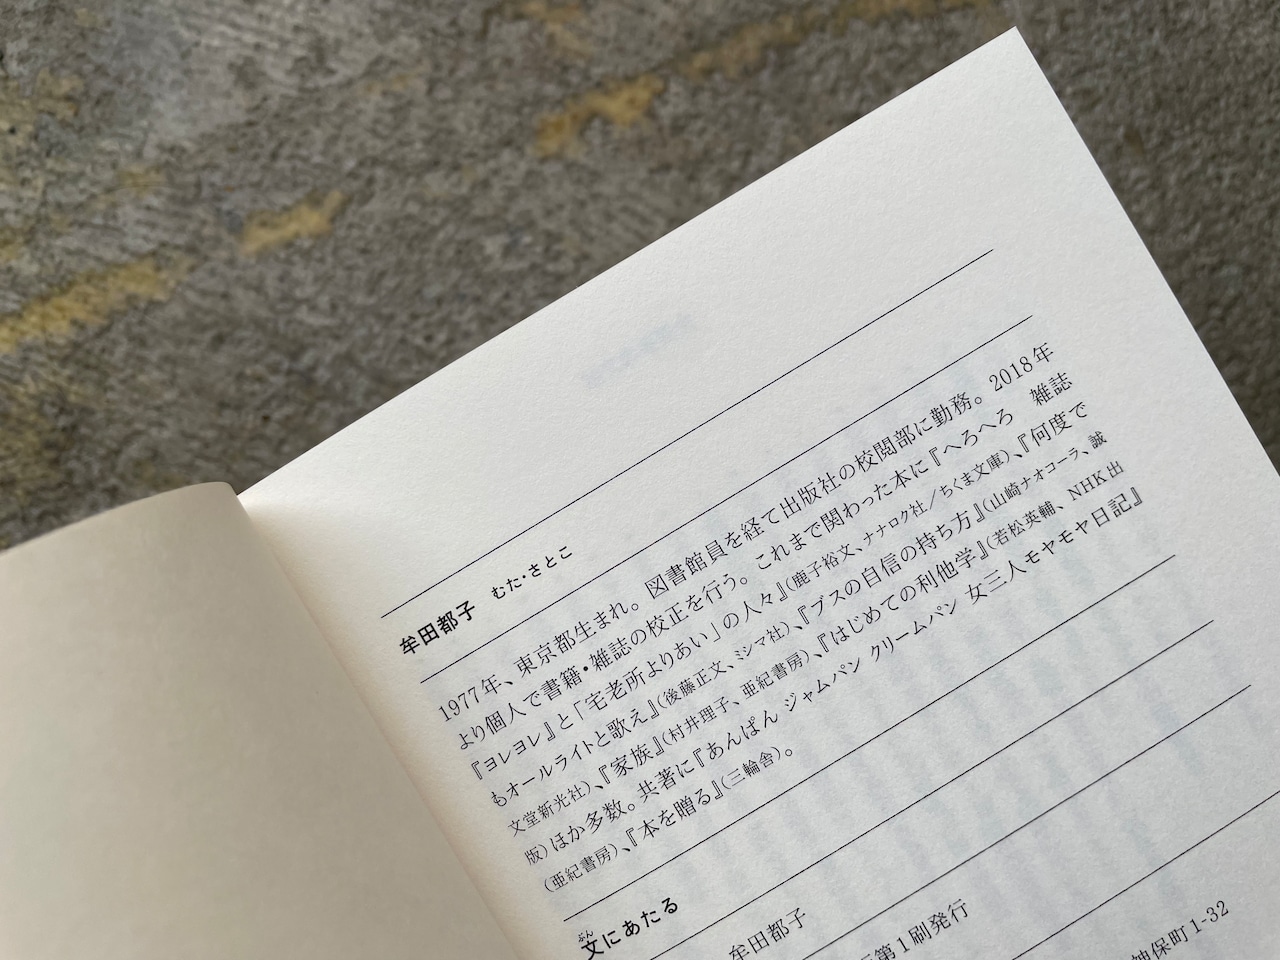 牟田都子 むた・さとこ
1977年、東京都生まれ。図書館員を経て出版社の校閲部に勤務。2018年
より個人で書籍・雑誌の校正を行う。これまで関わった本に『へろへろ 雑誌
『ヨレヨレ』と「宅老所よりあい」の人々』(鹿子裕文、ナナロク社／ちくま文庫)、『何度で
もオールライトと歌え』(後藤正文、ミシマ社)、『ブスの自信の持ち方』(山崎ナオコーラ、誠
文堂新光社)、『家族』(村井理子、亜紀書房)、『はじめての利他学』(若松英輔、NHK出
版)ほか多数。共著に『あんぱん ジャムパン クリームパン 女三人モヤモヤ日記』
(亜紀書房)、『本を贈る』(三輪舎)。
文にあたる
ぶん
牟田都子
第1刷発行
神保町1-32